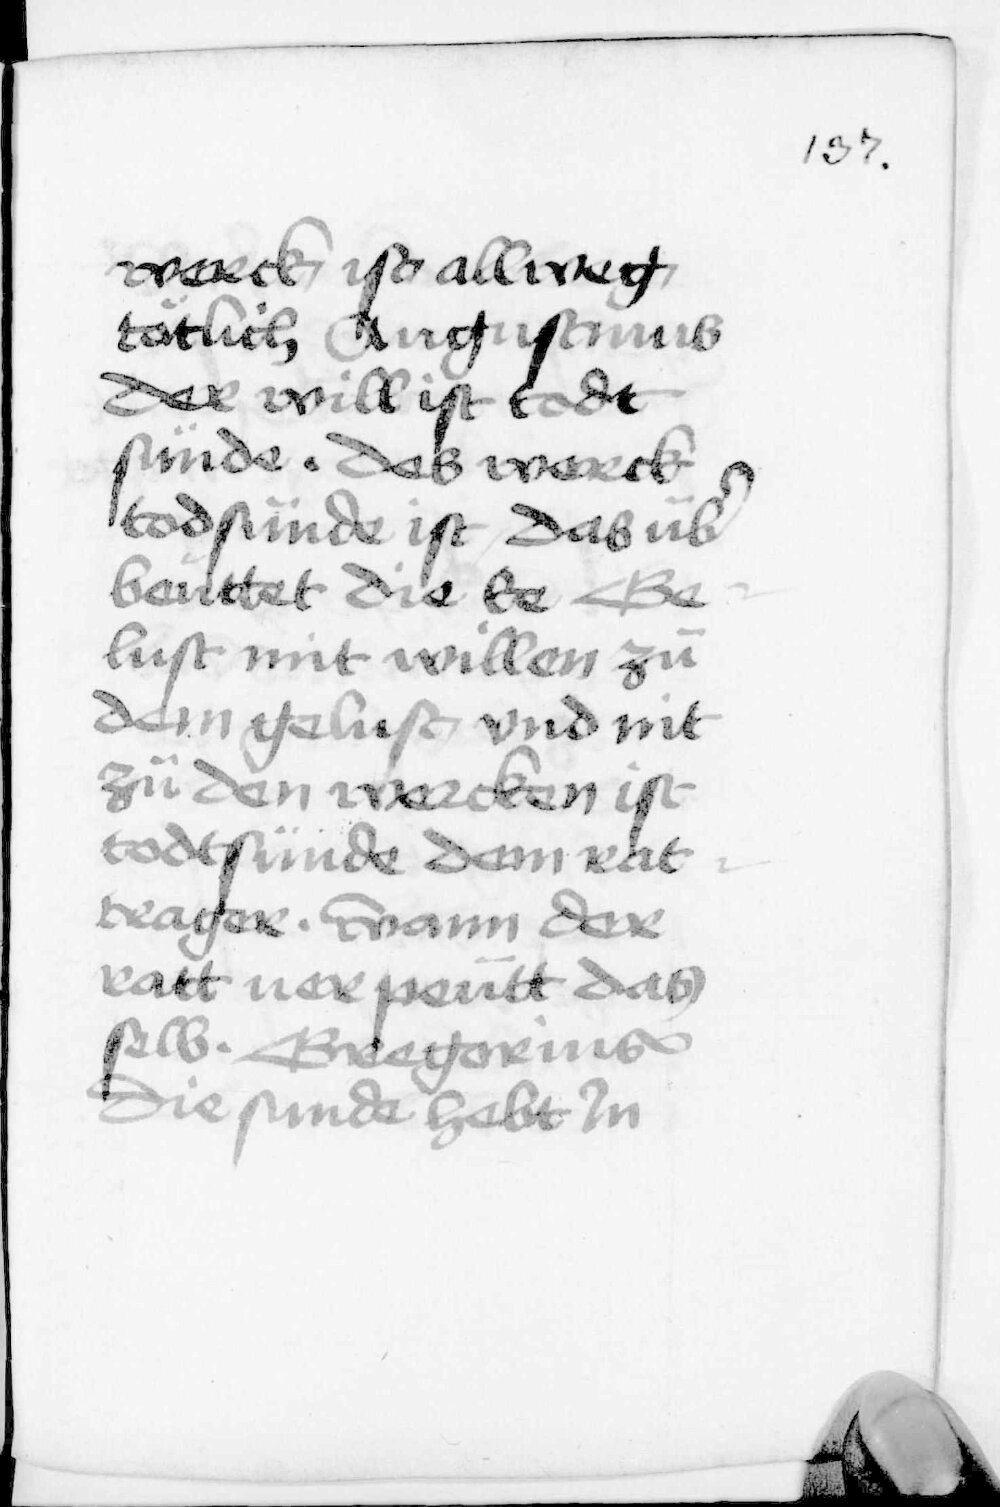 137.
werck ist allweg
tötlich Augustinus
der will ist todt
sünde . des werck
todsünde ist das üb᾿
beüttet die ee Ge-
lust mit willen zü
dem gelust vnd nit
zü den wercken ist
todtsünde dem rat-
trager . wann der
ratt uerpeütt das
selb . Gregorius
die sunde hebt In